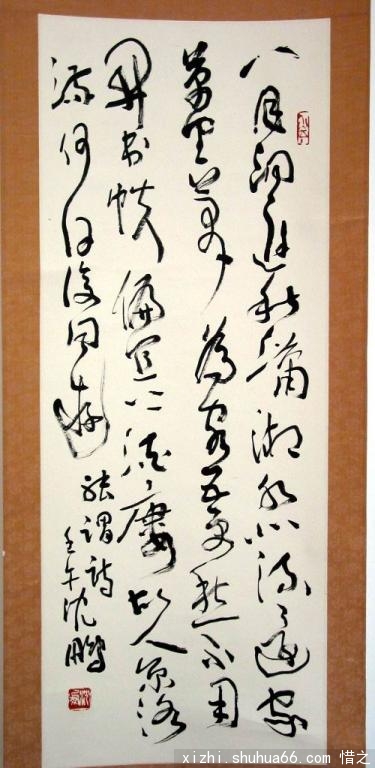 八月洞庭秋瀟湘水北流還家
萬里夢為客五更愁不用
開書帙偏宜上酒樓故人京洛
滿何日復同遊
張謂詩
壬午沈鵬
xizhi.shuhua66.com 惜之